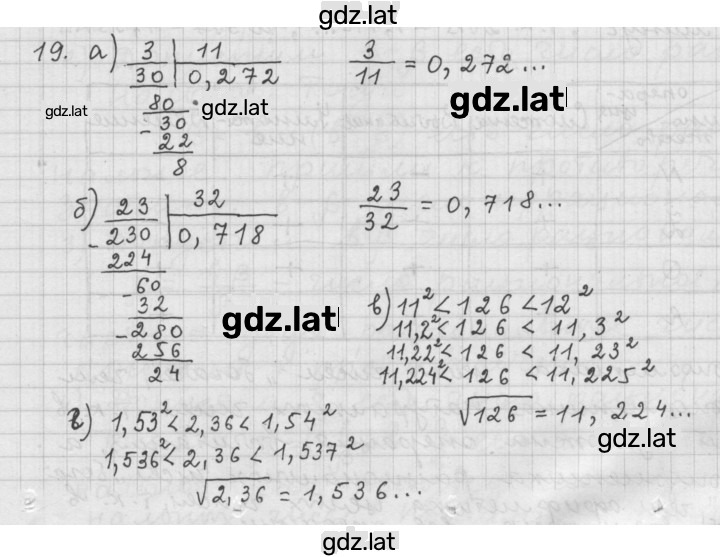 gdz.lat
19. а) 3 | 11
30 | 0,272
80
- 30
22
8
3/11 = 0,272...
gdz.lat
gdz.lat
gdz.lat
б) 23 | 32
- 230 | 0,718
224
- 60
32
- 280
256
24
23/32 = 0,718...
gdz.lat
в) 11² < 126 < 12²
11,2² < 126 < 11,3²
11,22² < 126 < 11,23²
11,224² < 126 < 11,225²
√126 = 11,224...
gdz.lat
г) 1,53² < 2,36 < 1,54²
1,536² < 2,36 < 1,537²
√2,36 = 1,536...
gdz.lat